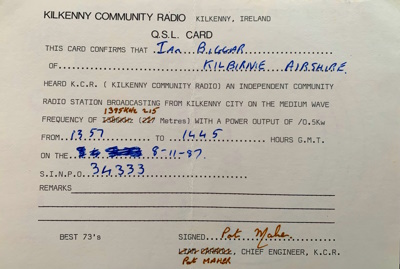 KILKENNY COMMUNITY RADIO KILKENNY, IRELAND
Q.S.L. CARD
THIS CARD CONFIRMS THAT Ian Biggar
OF KILBIRNIE AIRSHIRE
HEARD K.C.R. ( KILKENNY COMMUNITY RADIO) AN INDEPENDENT COMMUNITY
RADIO STATION BROADCASTING FROM KILKENNY CITY ON THE MEDIUM WAVE
1395KHz 215
FREQUENCY OF ( Metres) WITH A POWER OUTPUT OF /0.5Kw
FROM 13.57 TO 1445 HOURS G.M.T.
ON THE 8-11-87.
S.I.N.P.O. 34333
REMARKS
BEST 73's SIGNED Pat Maher
, CHIEF ENGINEER, K.C.R.
Pat MAHER